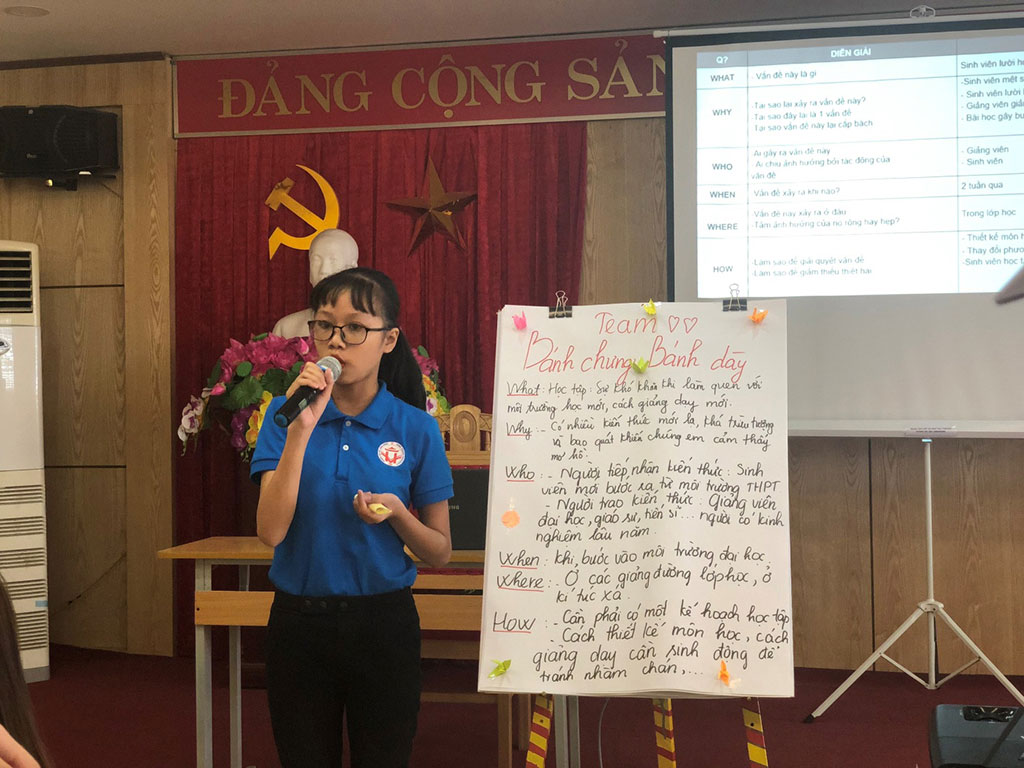 ĐẢNG CỘNG SẢN
Q? DIỄN GIẢI
WHAT - Vấn đề này là gì Sinh viên lười
WHY
-Tại sao lại xảy ra vấn đề này?
-Tại sao đây lại là 1 vấn đề
Tại sao vấn đề này lại cấp bách
-Sinh viên mệt
- Sinh viên lười
- Giảng viên
- Bài học gây
WHO
Ai gây ra vấn đề này
Ai chịu ảnh hưởng bởi tác động của
vấn đề
- Giảng viên
- Sinh viên
WHEN Vấn đề xảy ra khi nào? 2 tuần qua
WHERE
Vấn đề này xảy ra ở đâu
-Tầm ảnh hưởng của nó rộng hay hẹp?
Trong lớp học
HOW
-Làm sao để giải quyết vấn đề
-Làm sao để giảm thiểu thiệt hại
- Thiết kế môn
- Thay đổi
-Sinh viên học
Team ♡♡
Bánh chưng Bánh dày
What: Học tập: Sự khó khăn khi làm quen với
môi trường học mới, cách giảng dạy mới.
Why: - Có nhiều kiến thức mới lạ, khá trừu tượng
và bao quát khiến chúng em cảm thấy
mơ hồ.
Who: - Người tiếp nhận kiến thức: Sinh
viên mới bước ra từ môi trường THPT
- Người trao kiến thức: Giảng viên
đại học, giáo sư, tiến sĩ... người có kinh
nghiệm lâu năm.
When: Khi bước vào môi trường đại học
Where: - Ở các giảng đường lớp học, ở
kí túc xá.
How: - Cần phải có một kế hoạch học tập
- Cách thiết kế môn học, cách
giảng dạy cần sinh động để
tránh nhàm chán,...